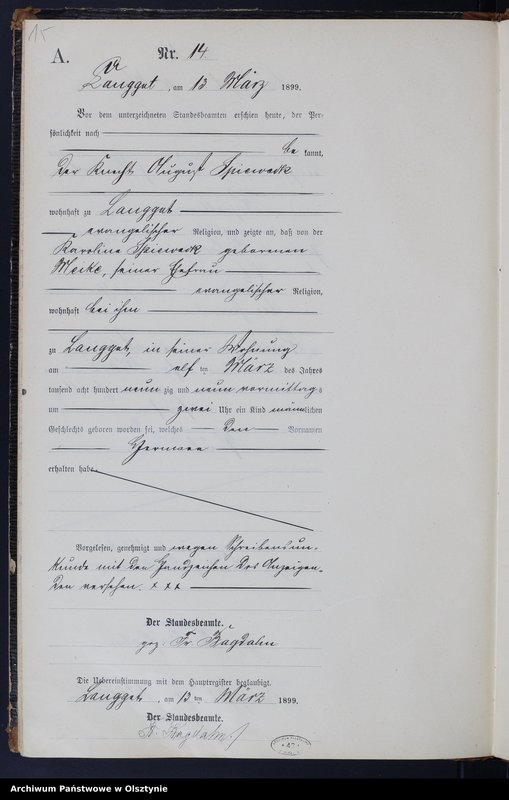 15
A.
Nr. 14.
Langgut, am 13 März 1899.
Vor dem unterzeichneten Standesbeamten erschien heute, der Per-
sönlichkeit nach
be kannt,
der Knecht August Spiewack
wohnhaft zu Langgut
evangelischer Religion, und zeigte an, daß von der
Karoline Spiewack geborenen
Meike, seiner Ehefrau
evangelischer Religion,
wohnhaft bei ihm
zu Langgut, in seiner Wohnung
am elf ten März des Jahres
tausend acht hundert neun zig und neun vormittags
um zwei Uhr ein Kind männlichen
Geschlechts geboren worden sei, welches den Vornamen
Hermann
erhalten habe.
Vorgelesen, genehmigt und wegen Schreibensun-
kunde mit den Handzeichen des Anzeigen-
den versehen. x x x
Der Standesbeamte.
gez. Fr. Kagdalm
Die Uebereinstimmung mit dem Hauptregister beglaubigt.
Langgut, am 13 ten März 1899.
Der Standesbeamte.
Fr. Kagdalm
Archiwum Państwowe w Olsztynie